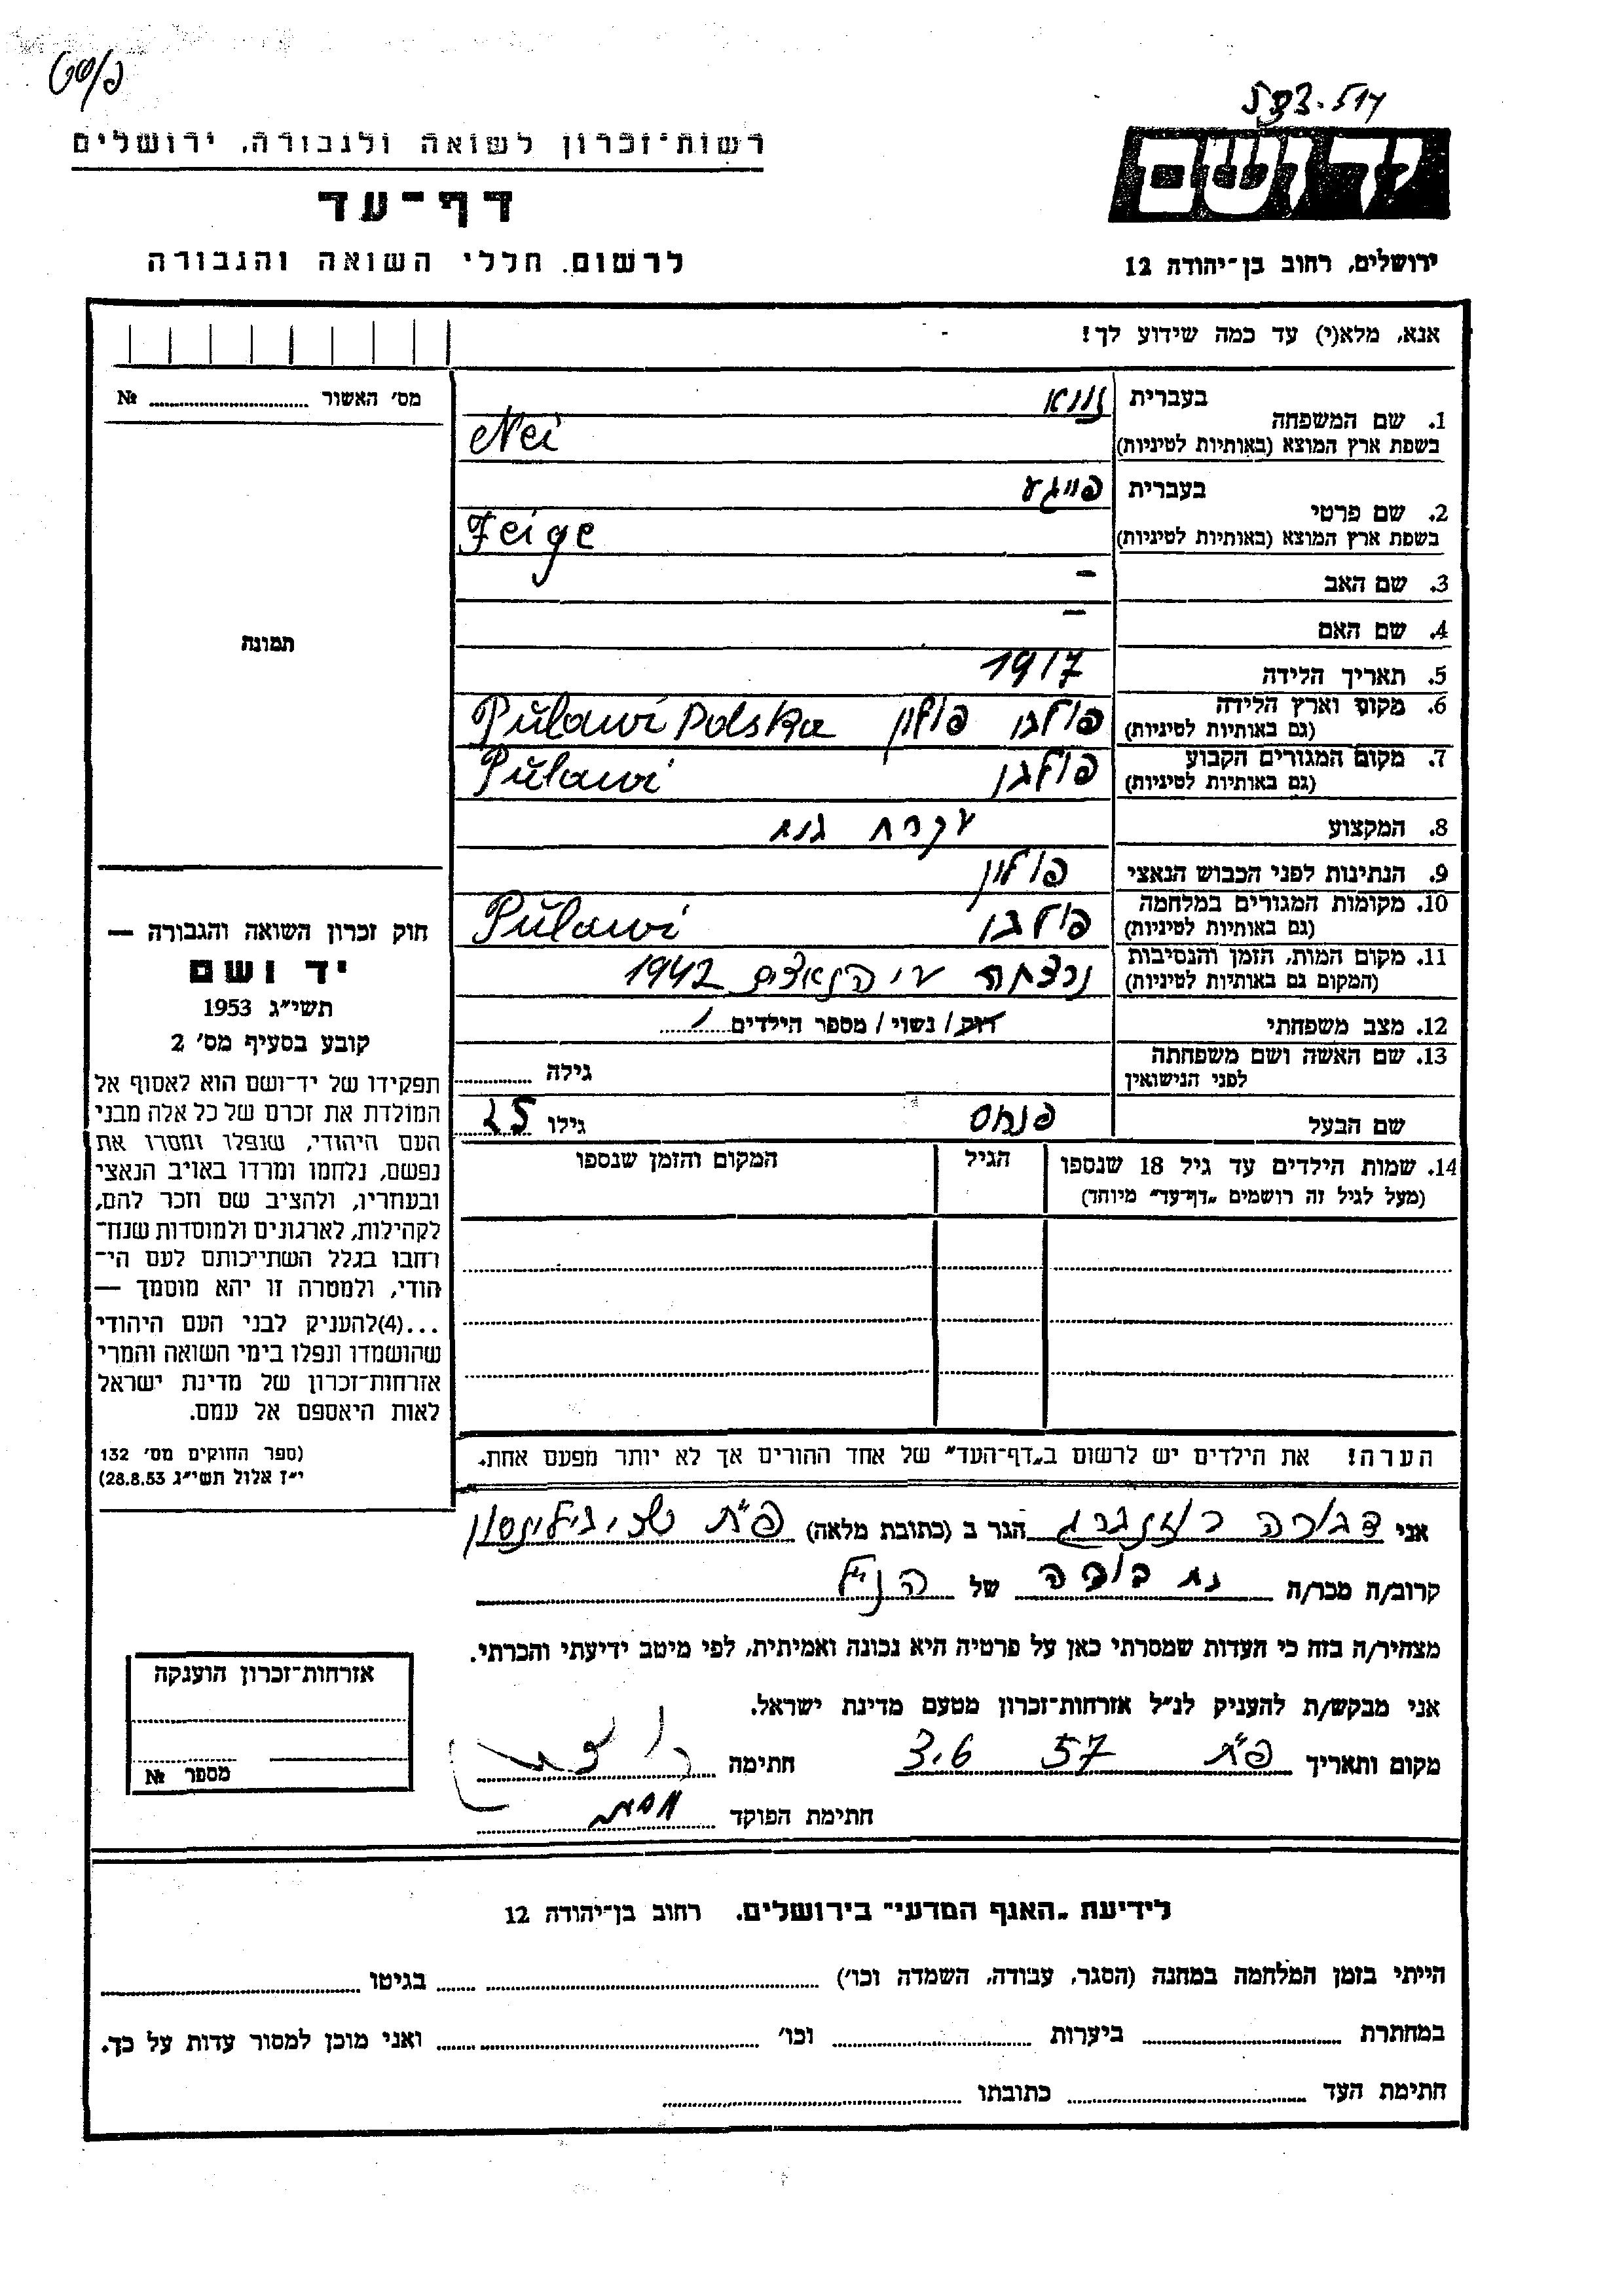 רשות־זכרון לשואה ולגבורה, ירושלים
דף־עד
לרשום חללי השואה והגבורה
יד ושם
ירושלים, רחוב בן־יהודה 12
אנא, מלא(י) עד כמה שידוע לך!
מס׳ האשור № ............
1. שם המשפחה
בעברית
בשפת ארץ המוצא (באותיות לטיניות)
Nei
2. שם פרטי
בעברית פייגע
בשפת ארץ המוצא (באותיות לטיניות)
Feige
3. שם האב –
4. שם האם –
5. תאריך הלידה 1917
6. מקום וארץ הלידה (גם באותיות לטיניות) פולבי פולין Pŭlawi Polska
7. מקום המגורים הקבוע (גם באותיות לטיניות) פולבי Pŭlawi
8. המקצוע עקרת בית
9. הנתינות לפני הכבוש הנאצי פולין
10. מקומות המגורים במלחמה (גם באותיות לטיניות) פולבי Pŭlawi
11. מקום המות, הזמן והנסיבות (המקום גם באותיות לטיניות) נרצחה ע״י הנאצים 1942
12. מצב משפחתי רווק / נשוי / מספר הילדים 1
13. שם האשה ושם משפחתה לפני הנישואין גילה
שם הבעל פנחס גילו 25
14. שמות הילדים עד גיל 18 שנספו (מעל לגיל זה רושמים „דף־עד״ מיוחד)
הגיל
המקום והזמן שנספו
הערה! את הילדים יש לרשום ב„דף־העד״ של אחד ההורים אך לא יותר מפעם אחת.
תמונה
חוק זכרון השואה והגבורה —
יד ושם
תשי״ג 1953
קובע בסעיף מס׳ 2
תפקידו של יד־ושם הוא לאסוף אל
המולדת את זכרם של כל אלה מבני
העם היהודי, שנפלו ומסרו את
נפשם, נלחמו ומרדו באויב הנאצי
ובעוזריו, ולהציב שם וזכר להם,
לקהילות, לארגונים ולמוסדות שנח־
רבו בגלל השתייכותם לעם הי־
הודי, ולמטרה זו יהא מוסמך —
...(4) להעניק לבני העם היהודי
שהושמדו ונפלו בימי השואה והמרי
אזרחות־זכרון של מדינת ישראל
לאות היאספם אל עמם.
(ספר החוקים מס׳ 132
י״ז אלול תשי״ג 28.8.53)
אני דבורה רוזנברג הגר ב (כתובת מלאה) פ״ת
קרוב/ה מכר/ה בת דודה של הנ״ל
מצהיר/ה בזה כי העדות שמסרתי כאן על פרטיה היא נכונה ואמיתית, לפי מיטב ידיעתי והכרתי.
אני מבקש/ת להעניק לנ״ל אזרחות־זכרון מטעם מדינת ישראל.
מקום ותאריך פ״ת 3.6 57 חתימה
חתימת הפוקד
אזרחות־זכרון הוענקה
מספר №
לידיעת „האגף המדעי״ בירושלים, רחוב בן־יהודה 12
הייתי בזמן המלחמה במחנה (הסגר, עבודה, השמדה וכו׳) ............ בגיטו ............
במחתרת ............ ביערות ............ וכו׳ ............ ואני מוכן למסור עדות על כך.
חתימת העד ............ כתובתו ............